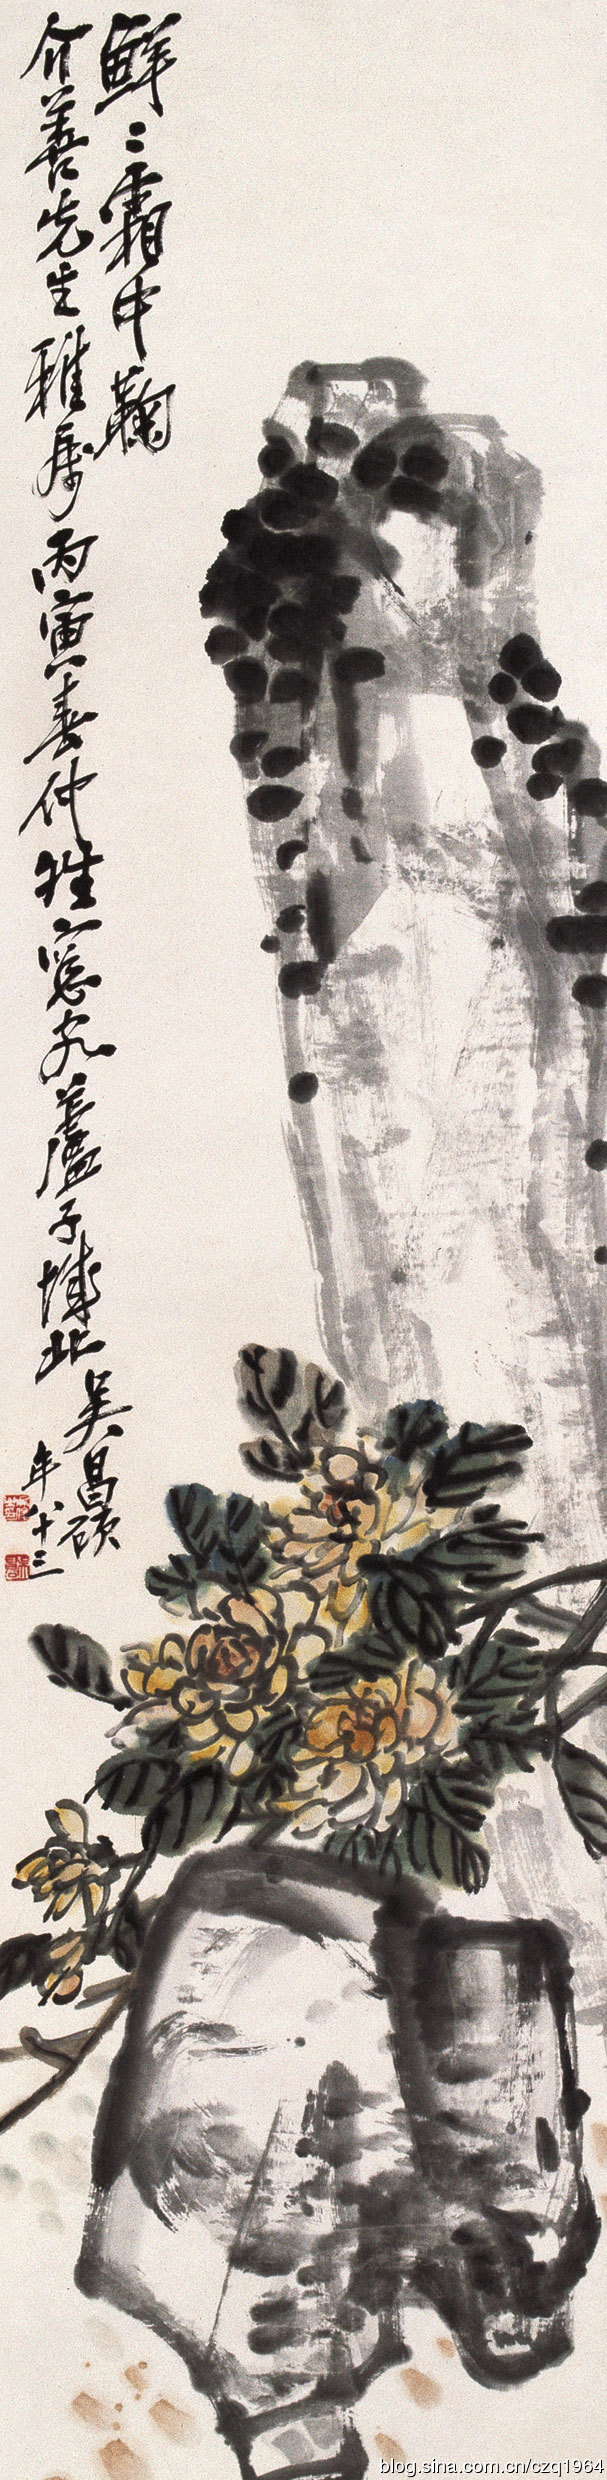 鮮〻霜中鞠
介善先生雅属丙寅春仲蘆子城北
吴昌碩
年八十三
blog.sina.com.cn/czq1964